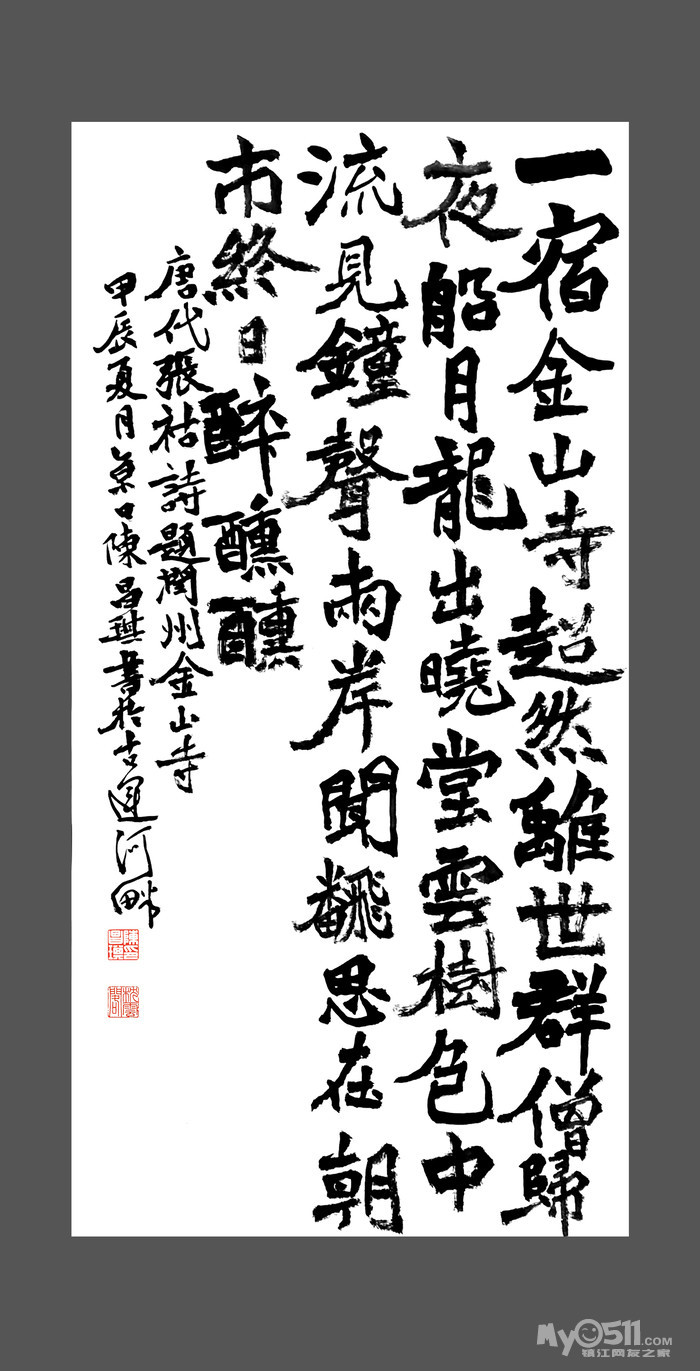 一宿金山寺超然離世群僧歸
夜船月龍出曉堂雲樹色中
流見鐘聲兩岸聞飜思在朝
市終日醉醺醺
唐代張祜詩題潤州金山寺
甲辰夏月京口陳昌書於古運河畔
My0511.com
镇江网友之家